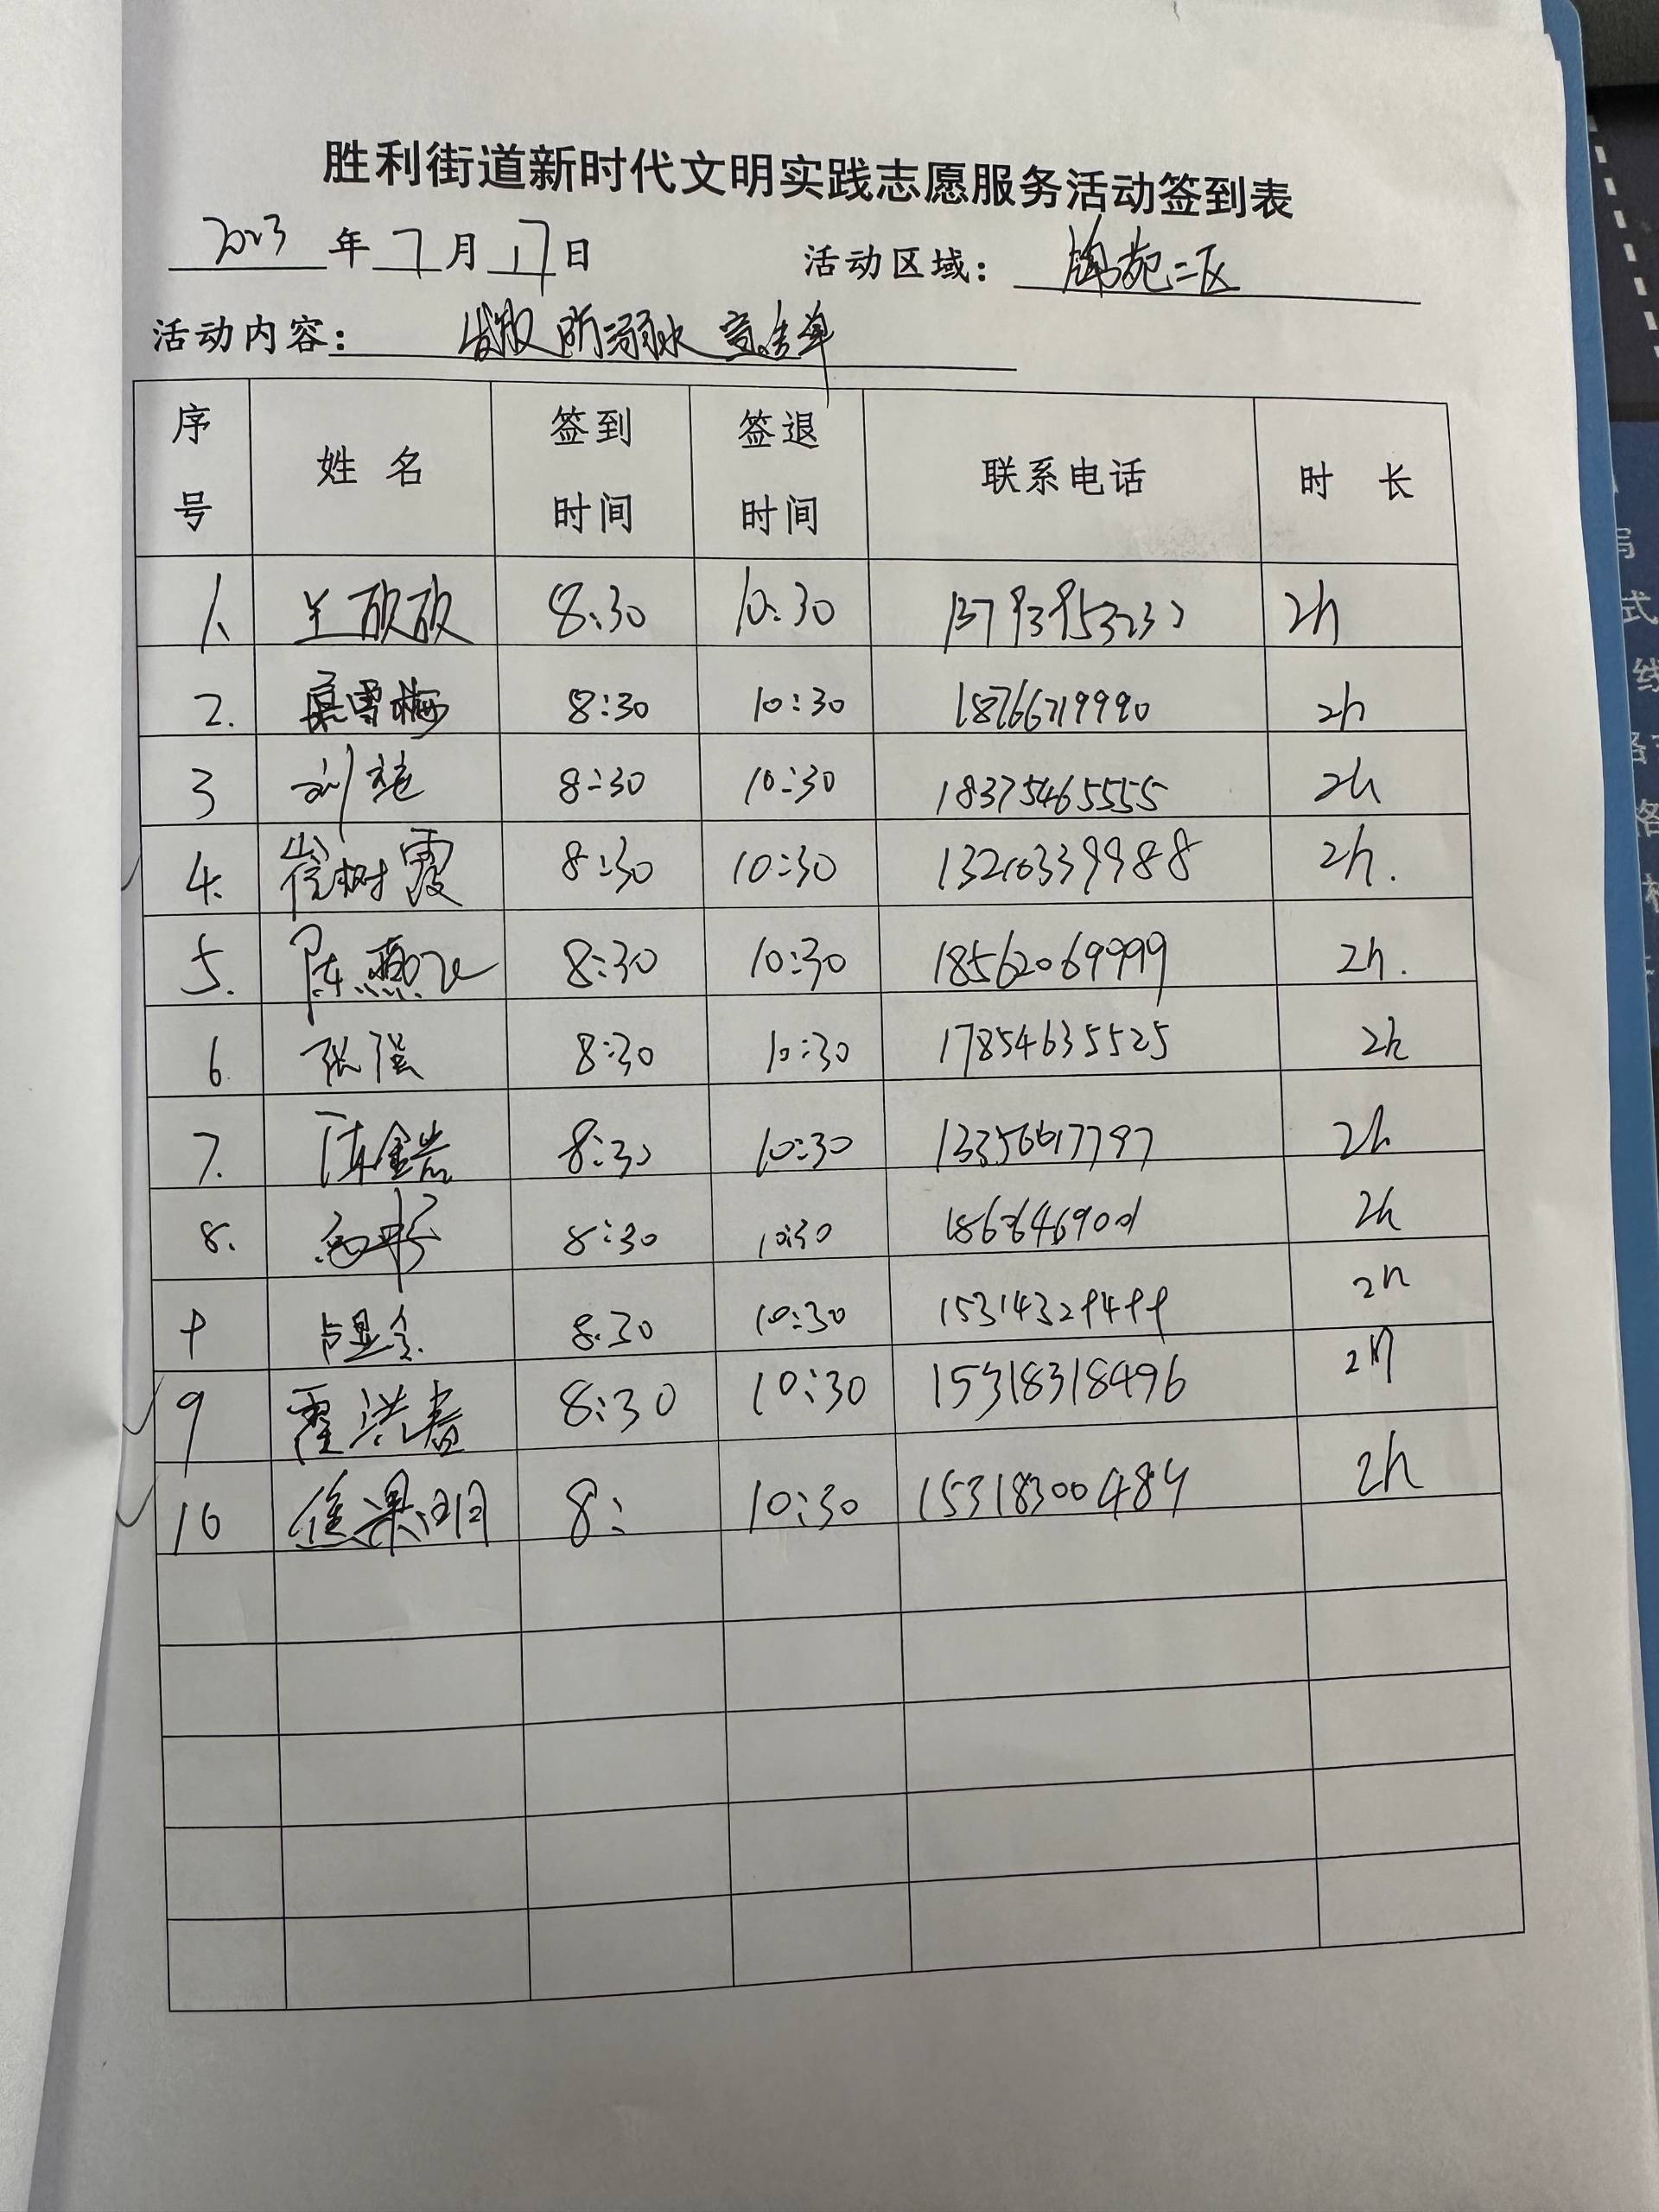 胜利街道新时代文明实践志愿服务活动签到表
2023年7月17日 活动区域：锦苑二区
活动内容：发放防溺水宣传单
序号 姓名 签到时间 签退时间 联系电话 时长
1、 8:30 10:30 2h
2. 8:30 10:30 18766719990 2h
3 8:30 10:30 18375465555 2h
4. 崔树霞 8:30 10:30 13210339988 2h.
5. 8:30 10:30 18562069999 2h.
6. 张强 8:30 10:30 17854635525 2h
7. 8:30 10:30 2h
8. 8:30 10:30 2h
8:30 10:30 2h
9 霍洪春 8:30 10:30 15318318496 2h
10 8: 10:30 15318300484 2h